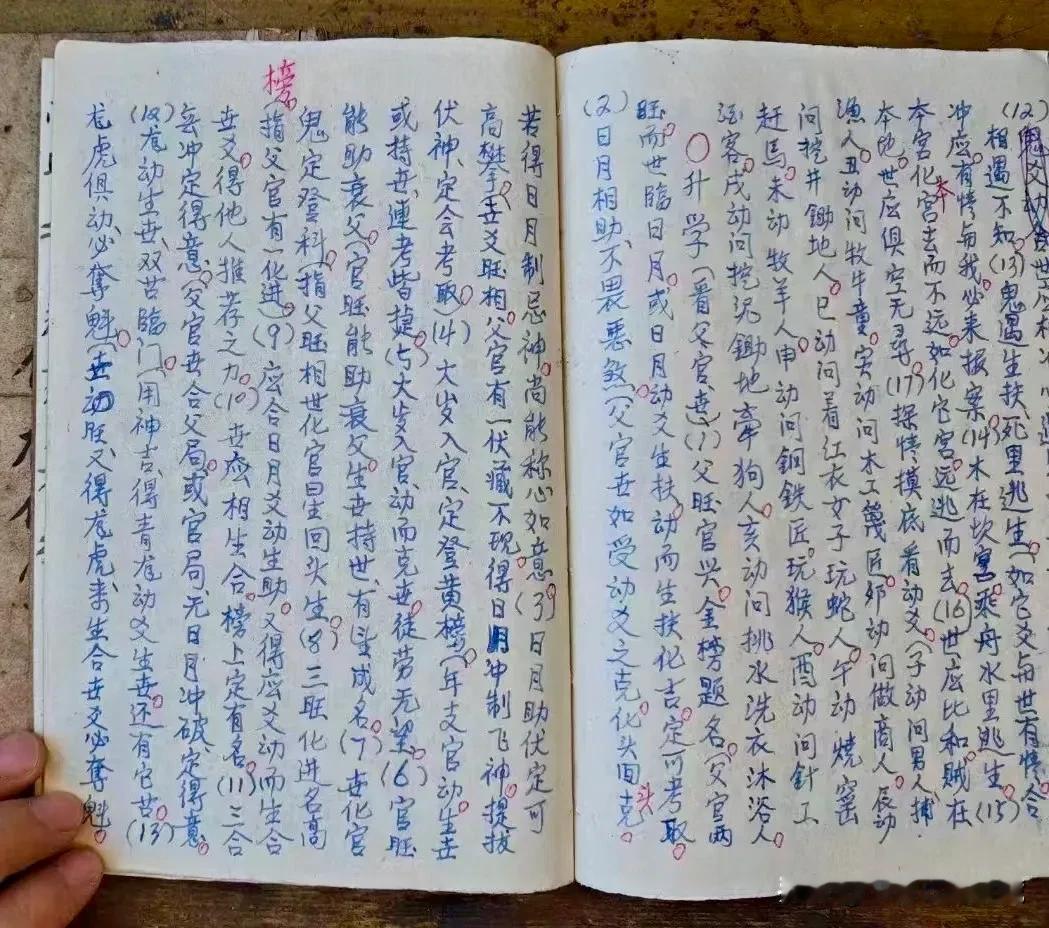 (12)鬼父动合世应相冲
相遇不知(13)鬼遇生扶,死里逃生(如官父与世有情合
冲应,有情与我,必来报案(14)木在坎宫乘舟水里逃生(15)
本宫化本宫去而不远,如化它宫远逃而去(16)世应比和贼在
本地,世应俱空无寻(17)探情摸底看动爻(子动问男人捕
渔人丑动问牧牛童,寅动问木工篾匠卯动问做商人,辰动
问挖井锄地人巳动问着红衣女子玩蛇人午动烧窑
赶马,未动牧羊人申动问铜铁匠玩猴人酉动问針工
酒客,戌动问挖泥锄地牵狗人亥动问挑水洗衣沐浴人
○升学(看父官、世)(1)父旺官兴金榜题名(父官两
旺而世临日月,或日月动爻生扶动而生扶化吉,定可考取
(2)日月相助、不畏恶煞(父官世如受动爻之克化头回克
若得日月制忌神,尚能称心如意(3)日月助伏定可
高攀(世爻旺相,父官有一伏藏不现得日月冲制飞神,提拔
伏神、定会考取)(4)大岁入官、定登黄榜(年支官动生世
或持世、連考皆捷(5)大岁入官、动而克世,徒劳无望(6)官旺
能助衰父(官旺能助衰父生世持世、有望成名(7)世化官
鬼定登科(指父旺相世化官星回头生(8)三旺化进名高
榜(指父官有一化进)(9)应合日月爻动生助,又得应爻动而生合
世爻,得他人推荐之力(10)世應相生合榜上定有名(11)三合
無冲定得意,父官世合父局,或官局,无日月冲破、定得意
(12)龙动生世、双苦临门(用神吉、得青龙动爻生世,还有它苦(13)
龙虎俱动、必奪魁(世动旺又得龙虎、来生合世爻必奪魁